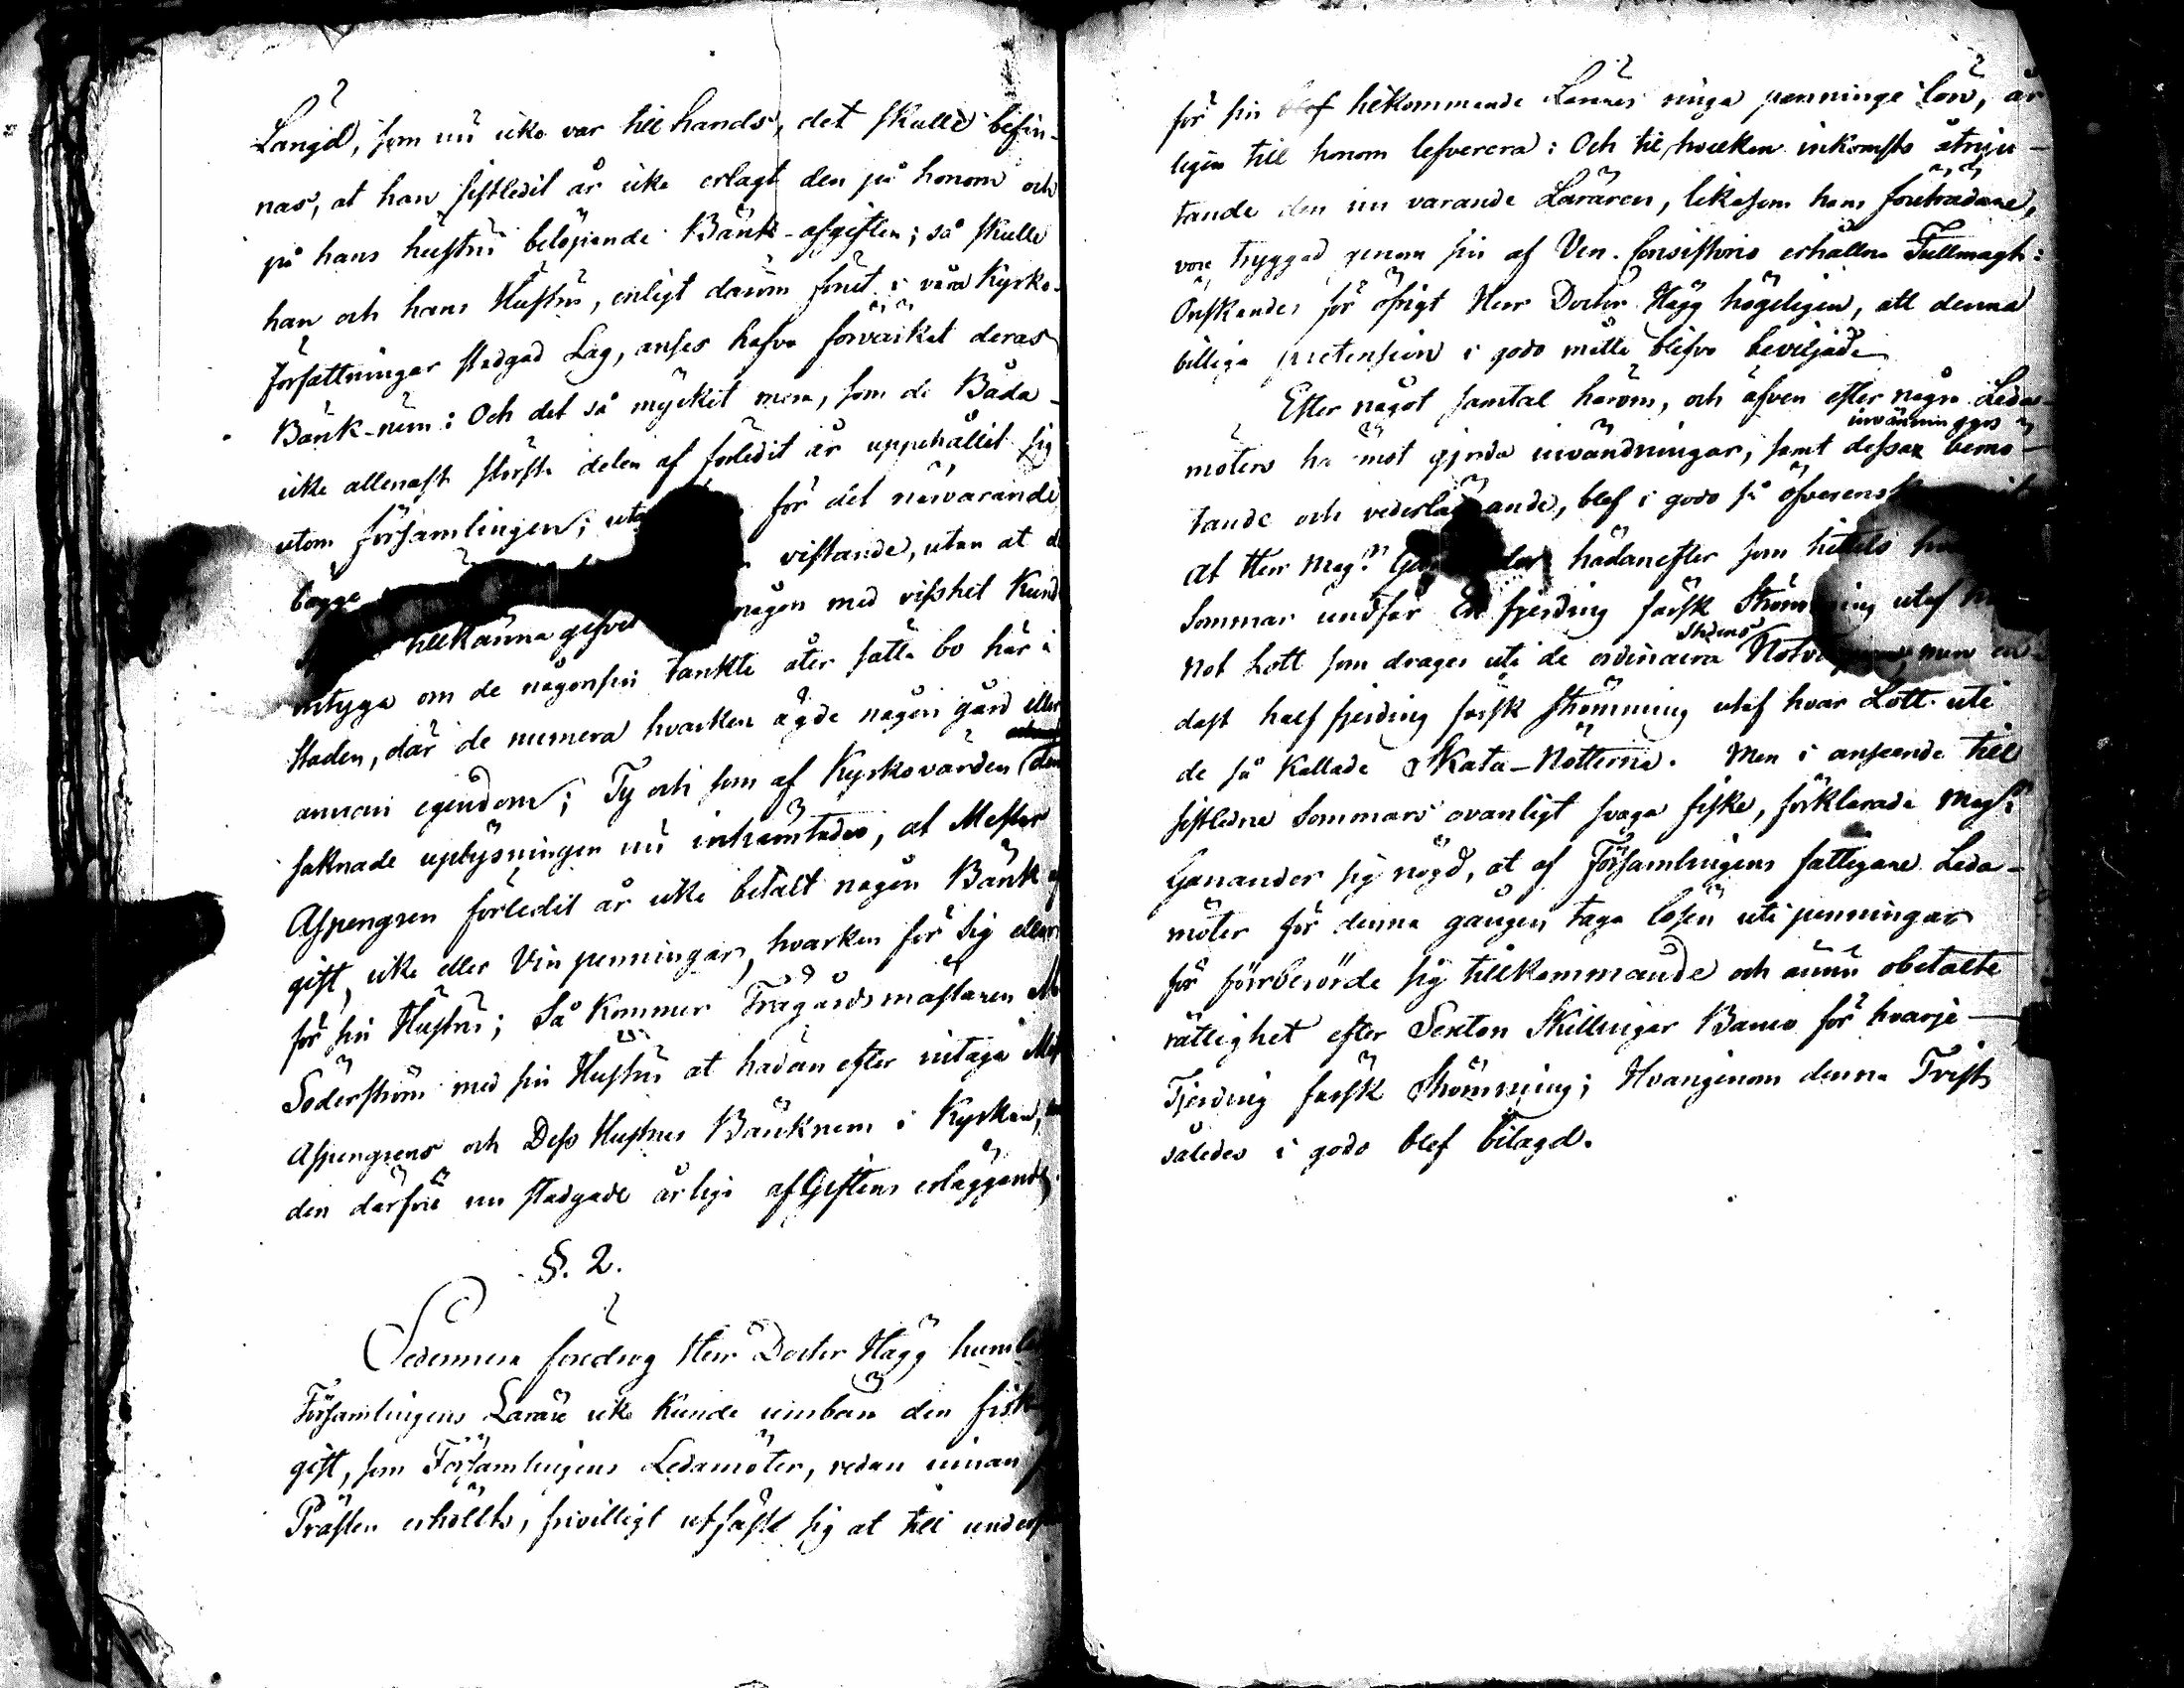 Längd, som nu icke var till hands, det skulle befin-
nas, at han sistledit år icke erlagt den på honom och
på hans hustru belöpande Bänk-afgiften; så skulle
han och hans Hustru, enligt därom förut i våra Kyrko-
Författningar stadgad Lag, anses hafva förvärkat deras
Bänk-rum: Och det så mycket mera, som de Båda
icke allenast största delen af förledit år uppehållit sig
utom församlingen; för det närvarande
bägge vistande, utan at
tillkänna gifvet någon med visshet kund
intyga om de någonsin tänkte åter sätta bo här i
staden, där de numera hvarken ägde någon gård eller
annan egendom; Ty och som af Kyrkovärden den
saknade uplysningen nu inhämtades, at Mester
Aspengren förledit år icke betalt någon Bänk
gift, icke eller Vin penningar, hvarken för sig eller
för sin Hustru; Så kommer Trägårdsmästaren
Söderström med sin Hustru at hädan efter intaga
Aspengrens och Dess Hustrus Bänkrum i Kyrkan,
den därföre nu stadgade årliga afGiftens erläggande.
§. 2.
Sedermera föredrog Herr Doctor Hägg
Församlingens Lärare icke kunde umbära den fisk
gift, som Församlingens Ledamöter, redan innan
Prästen erhöllts, frivilligt utfäst sig at till
för sin blef hitkommande Lärares ringa penninge lön, år
ligen till honom lefverera: Och til hvilken inkomsts åtnju-
tande den nu varande Läraren, likasom hans företrädare,
vore tryggad genom sin af Ven. Consistorio erhållna Fullmagt:
Önskandes för öfrigt Herr Doctor Hägg högeligen, att denna
billiga pretension i godo måtte blifva beviljad.
Efter något samtal härom, och äfven efter några Leda-
invänningars
möters här mot gjorda invändningar, samt dessas bemö-
tande och vederläggande, blef i godo så
At Herr Mag:r hädanefter som hittils
Sommar undfår En fjerding färsk Strömming utaf
Ströms
Not Lott som drages uti de ordinaira men en-
dast half fjerding färsk strömming utaf hvar Lott uti
de så kallade Skata-Nötterna. Men i anseende till
sistledne Sommars ovanligt svaga fiske, förklarade Mag:r
Ganander sig nögd, at af Församlingens fattigare Leda-
möter för denna gången taga lösen uti penningar
för förberörde sig tillkommande och ännu obetalte
rättighet efter Sexton Skillingar Banco för hvarje
Fjerding färsk Strömming; Hvarigenom denna Tvist
således i godo blef bilagd.